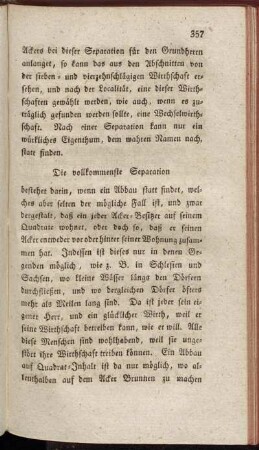 357
Ackers bei dieser Separation für den Grundherrn
anlanget, so kann das aus den Abschnitten von
der sieben- und vierzehnschlägigen Wirthschaft er-
sehen, und nach der Localität, eine dieser Wirth-
schaften gewählt werden, wie auch, wenn es zu-
träglich gefunden werden sollte, eine Wechselwirth-
schaft. Nach einer Separation kann nur ein
würkliches Eigenthum, dem wahren Namen nach,
statt finden.
Die vollkommenste Separation
bestehet darin, wenn ein Abbau statt findet, wel-
ches aber selten der mögliche Fall ist, und zwar
dergestalt, daß ein jeder Acker-Besitzer auf seinem
Quadrate wohnet, oder doch so, daß er seinen
Acker entweder vor oder hinter seiner Wohnung zusam-
men hat. Indessen ist dieses nur in denen Ge-
genden möglich, wie z. B. in Schlesien und
Sachsen, wo kleine Wässer längs den Dörfern
durchfließen, und wo dergleichen Dörfer öfters
mehr als Meilen lang sind. Da ist jeder sein ei-
gener Herr, und ein glücklicher Wirth, weil er
seine Wirthschaft betreiben kann, wie er will. Alle
diese Menschen sind wohlhabend, weil sie unge-
stört ihre Wirthschaft treiben können. Ein Abbau
auf Quadrat-Inhalt ist da nur möglich, wo al-
lenthalben auf dem Acker Brunnen zu machen